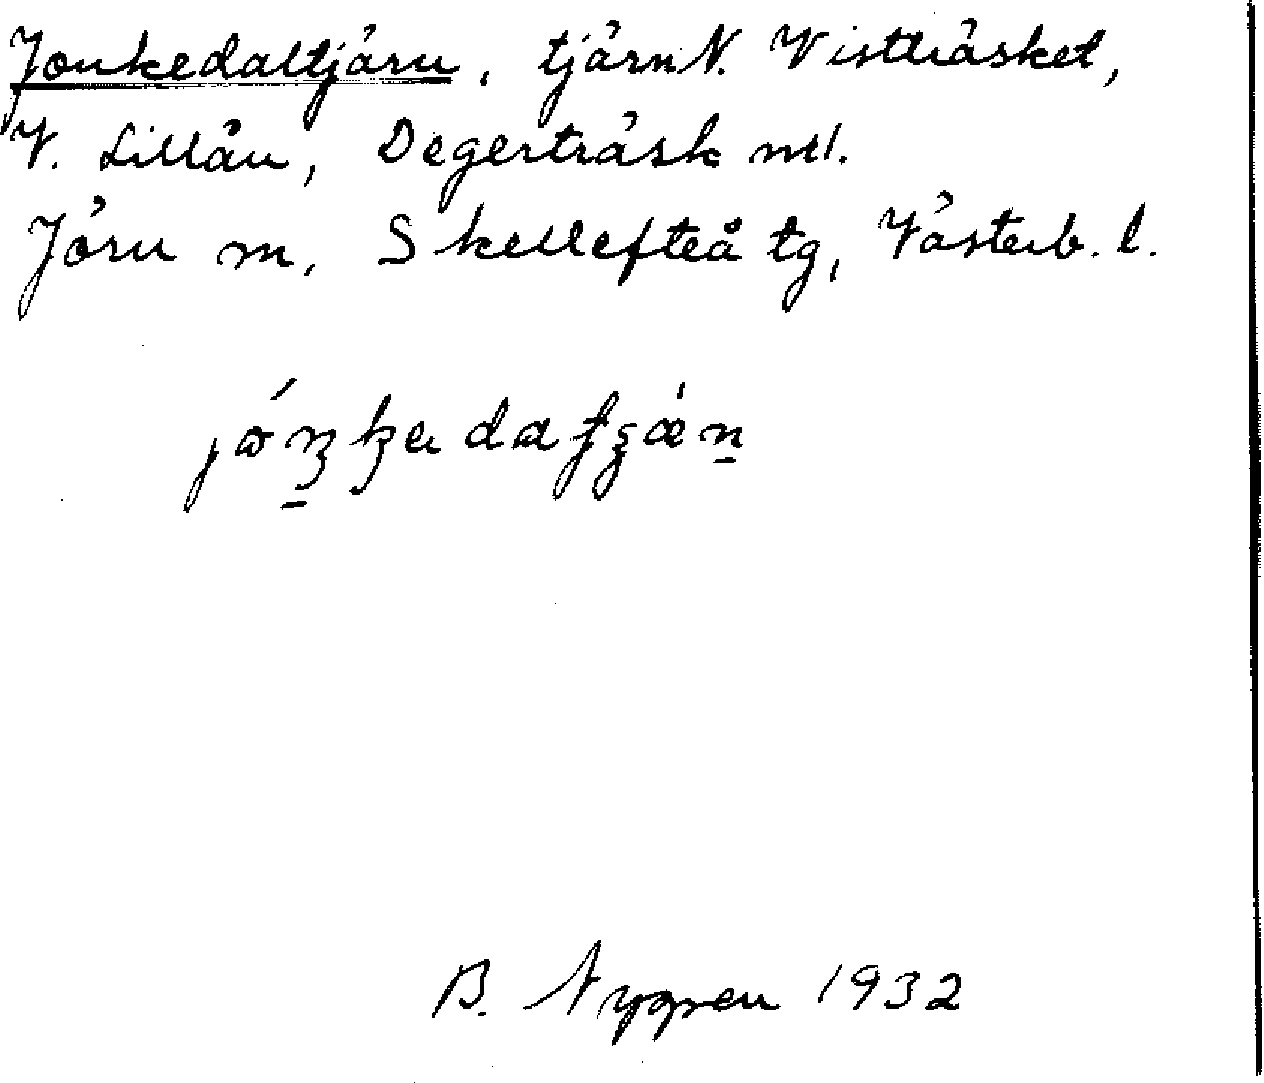 Jonkedaltjärn, tjärn N. Vistträsket,
V. Lillån, Degerträsk
Jörn sn, Skellefteå tg, Västerb. l.
B. Nygren 1932